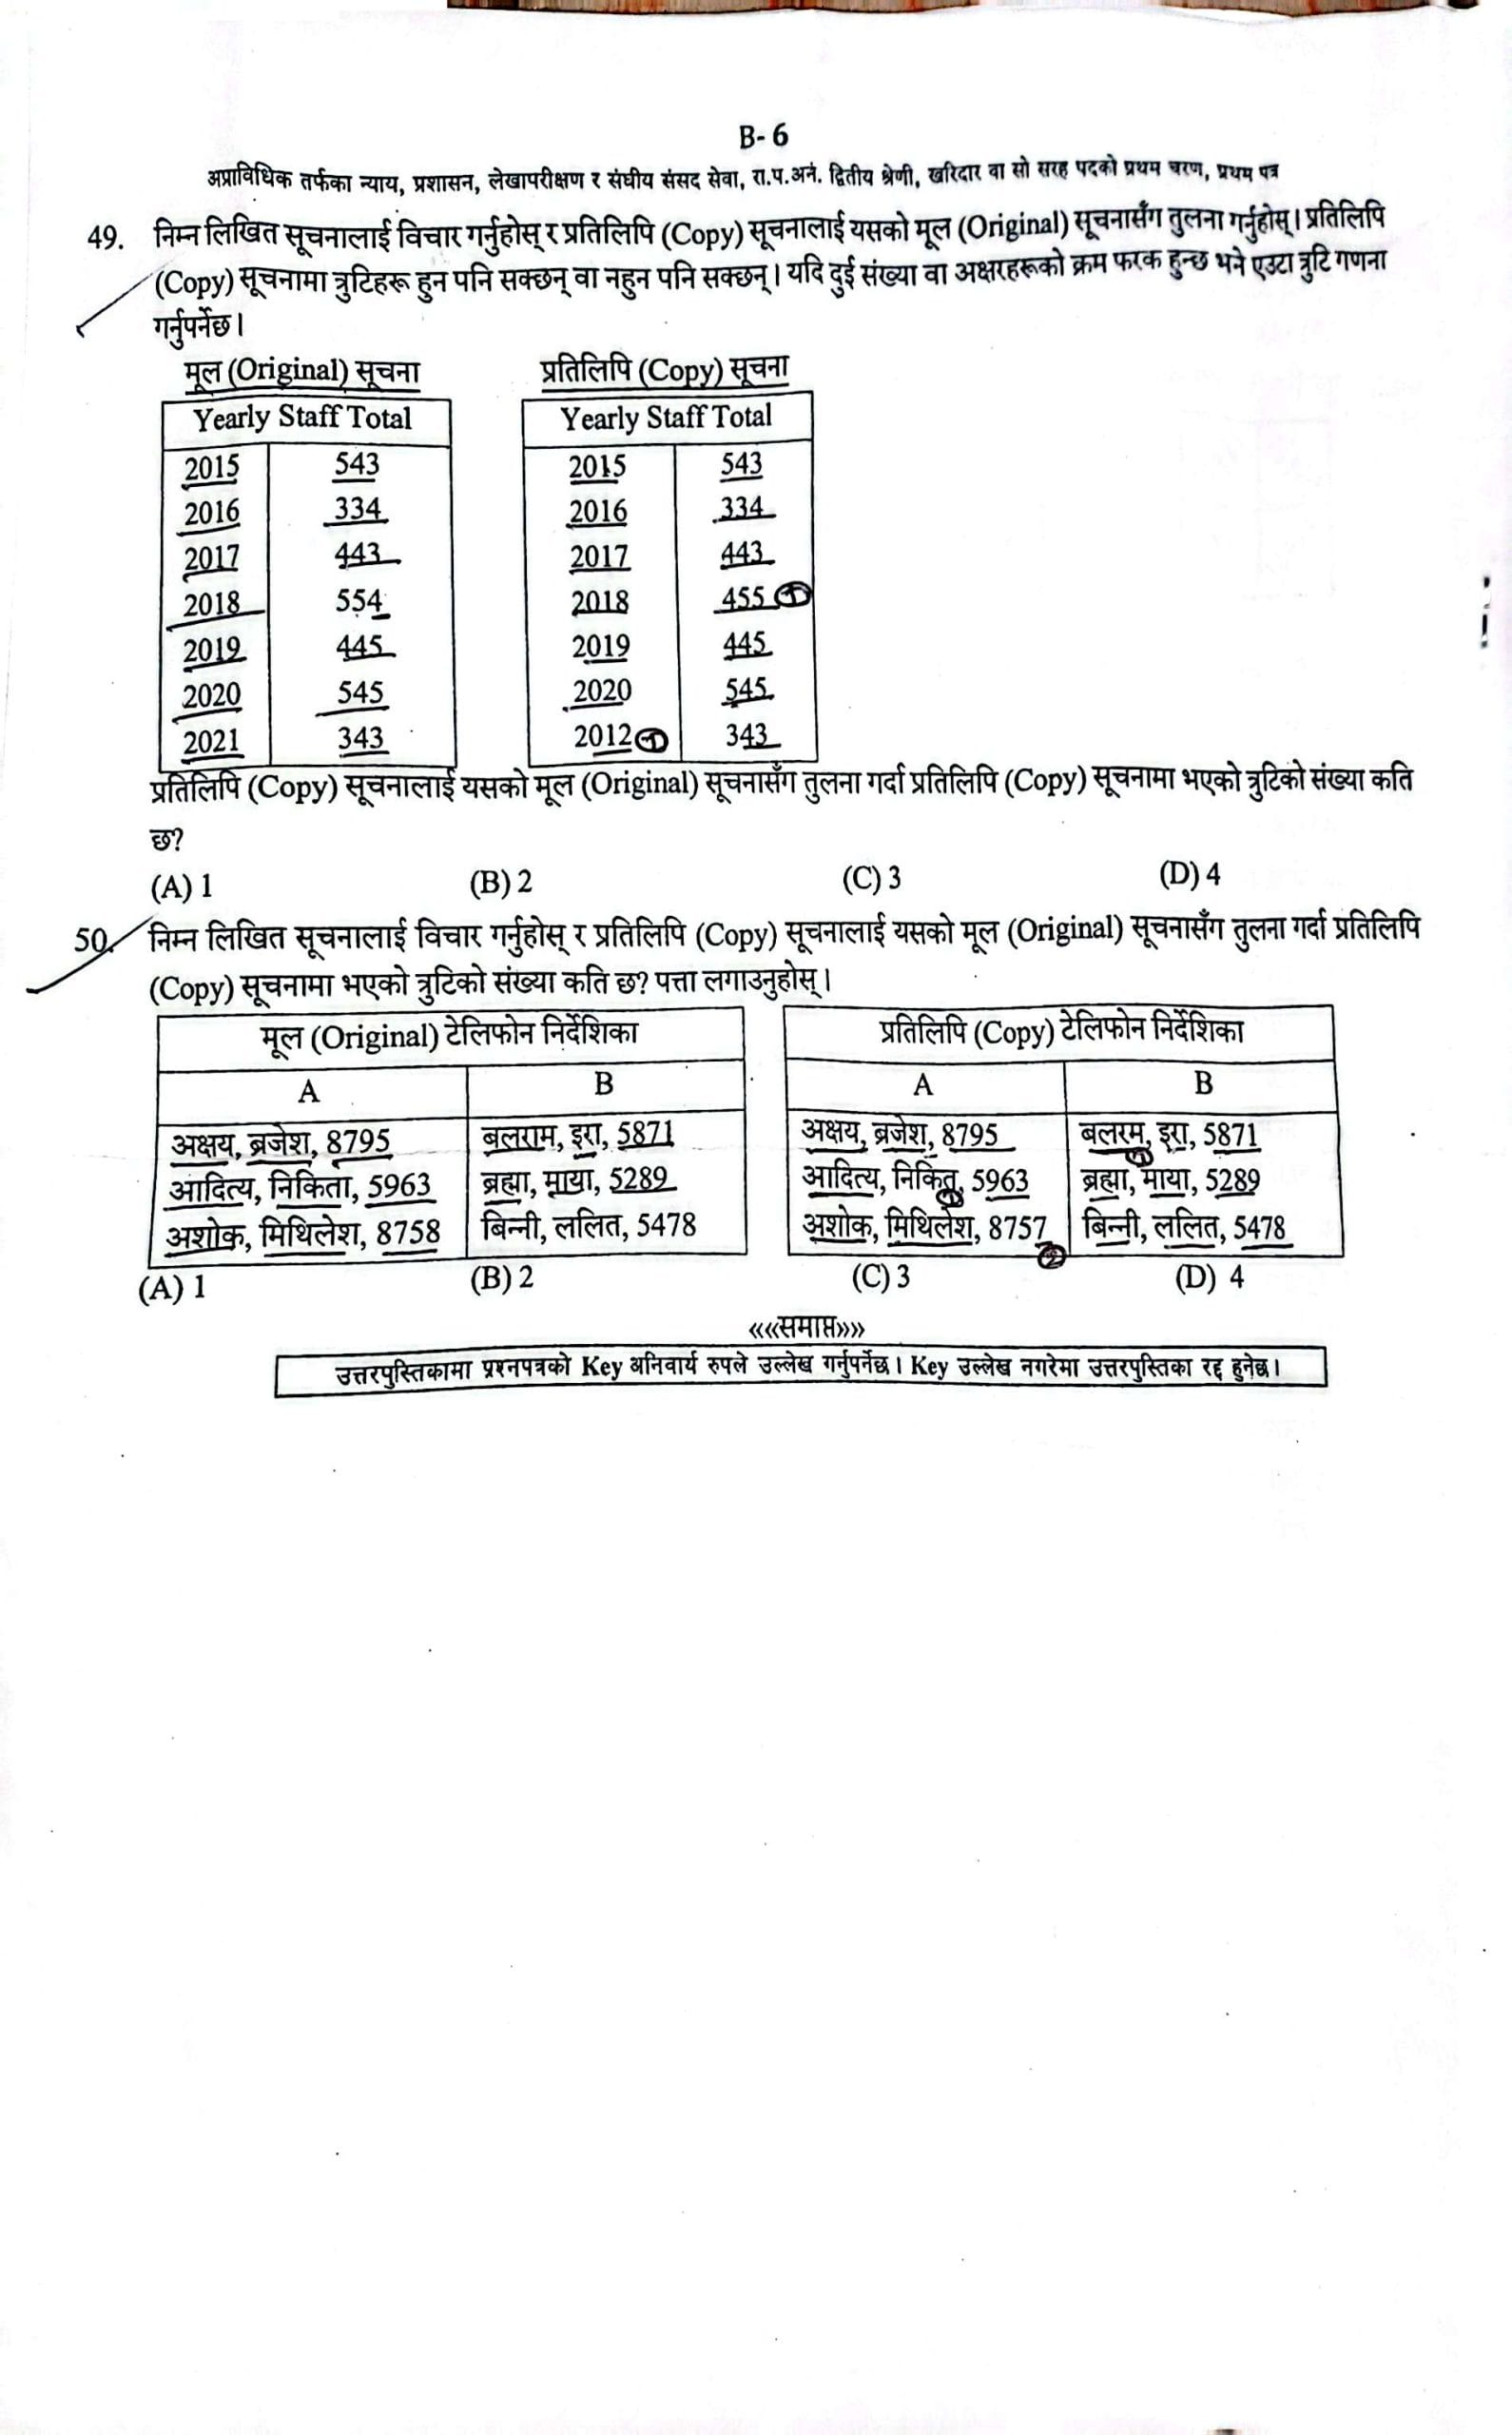 B- 6
अप्राविधिक तर्फका न्याय, प्रशासन, लेखापरीक्षण र संघीय संसद सेवा, रा.प.अनं. द्वितीय श्रेणी, खरिदार वा सो सरह पदको प्रथम चरण, प्रथम पत्र
49. निम्न लिखित सूचनालाई विचार गर्नुहोस् र प्रतिलिपि (Copy) सूचनालाई यसको मूल (Original) सूचनासँग तुलना गर्नुहोस्। प्रतिलिपि
(Copy) सूचनामा त्रुटिहरू हुन पनि सक्छन् वा नहुन पनि सक्छन्। यदि दुई संख्या वा अक्षरहरूको क्रम फरक हुन्छ भने एउटा त्रुटि गणना
गर्नुपर्नेछ।
मूल (Original) सूचना प्रतिलिपि (Copy) सूचना
Yearly Staff Total Yearly Staff Total
2015 543 2015 543
2016 334 2016 334
2017 443 2017 443
2018 554 2018 455 1
2019 445 2019 445
2020 545 2020 545
2021 343 2012 1 343
प्रतिलिपि (Copy) सूचनालाई यसको मूल (Original) सूचनासँग तुलना गर्दा प्रतिलिपि (Copy) सूचनामा भएको त्रुटिको संख्या कति
छ?
(A) 1 (B) 2 (C) 3 (D) 4
50. निम्न लिखित सूचनालाई विचार गर्नुहोस् र प्रतिलिपि (Copy) सूचनालाई यसको मूल (Original) सूचनासँग तुलना गर्दा प्रतिलिपि
(Copy) सूचनामा भएको त्रुटिको संख्या कति छ? पत्ता लगाउनुहोस्।
मूल (Original) टेलिफोन निर्देशिका प्रतिलिपि (Copy) टेलिफोन निर्देशिका
A B A B
अक्षय, ब्रजेश, 8795 बलराम, इरा, 5871 अक्षय, ब्रजेश, 8795 बलरम, इरा, 5871
आदित्य, निकिता, 5963 ब्रह्मा, माया, 5289 आदित्य, निकितु, 5963 ब्रह्मा, माया, 5289
अशोक, मिथिलेश, 8758 बिन्नी, ललित, 5478 अशोक, मिथिलेश, 8757 बिन्नी, ललित, 5478
(A) 1 (B) 2 (C) 3 (D) 4
««समाप्त»»
उत्तरपुस्तिकामा प्रश्नपत्रको Key अनिवार्य रुपले उल्लेख गर्नुपर्नेछ। Key उल्लेख नगरेमा उत्तरपुस्तिका रद्द हुनेछ।